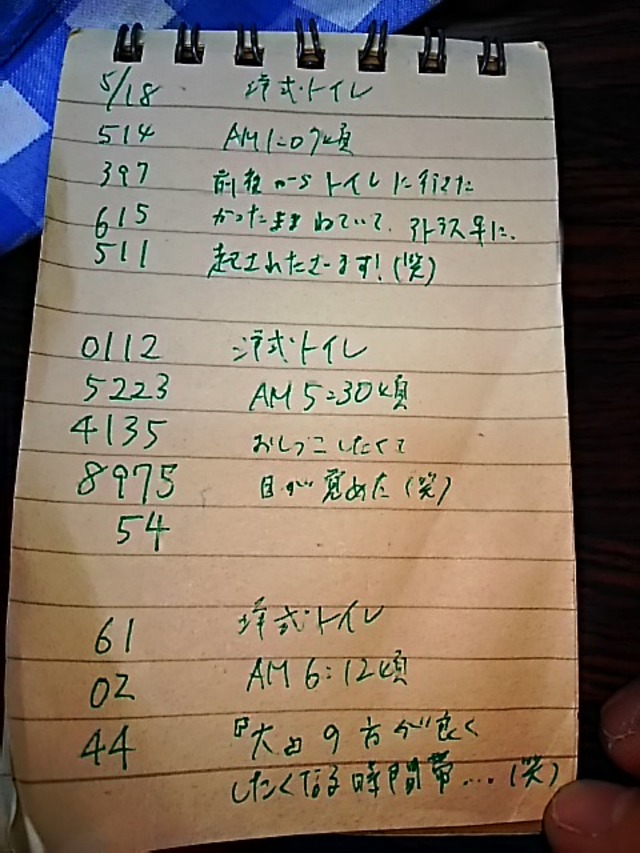 5/18 洋式トイレ
514 AM1:07頃
397 前夜からトイレに行きた
615 かったままねていて、アトラス早に、
511 起されたさーます!(笑)
0112 洋式トイレ
5223 AM5:30頃
4135 おしっこしたくて
8975 目が覚めた(笑)
54
61 洋式トイレ
02 AM6:12頃
44 『大』の方が良く
したくなる時間帯...(笑)